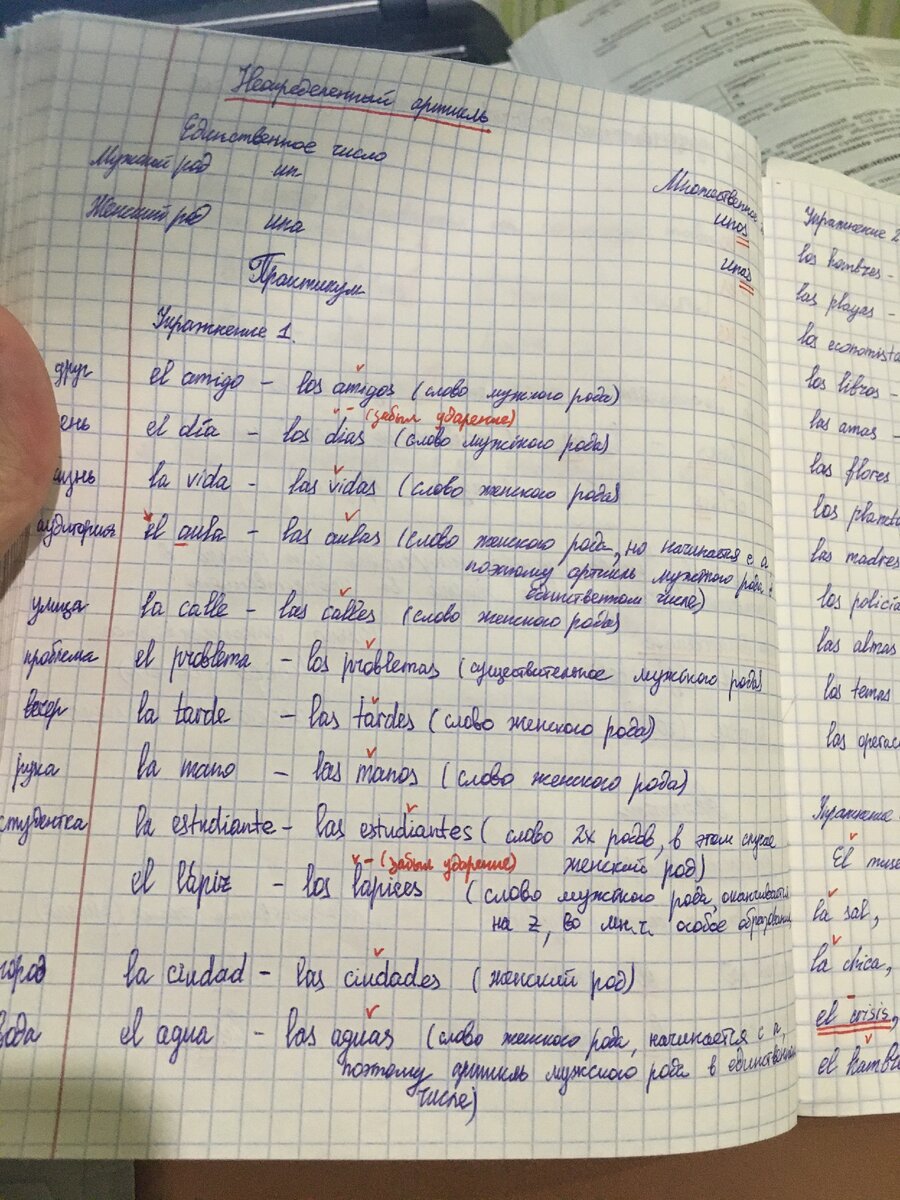 Неопределенный артикль
Единственное число
Мужской род un
Множественное
unos
Женский род una
unas
Практикум
Упражнение 1.
друг el amigo – los amigos (слово мужского рода)
(забыл ударение)
ень el día – los dias (слово мужского рода)
изнь la vida – las vidas (слово женского рода)
аудитория el aula – las aulas (слово женского рода, но начинается с а
поэтому артикль мужского рода в
единственном числе)
улица la calle – las calles (слово женского рода)
проблема el problema – los problemas (существительное мужского рода)
вечер la tarde – las tardes (слово женского рода)
рука la mano – las manos (слово женского рода)
студентка la estudiante – las estudiantes (слово 2х родов, в этом случае
женский род)
(забыл ударение)
el lápiz – los lapices (слово мужского рода, оканчивается
на z, во мн.ч. особое образование
город la ciudad – las ciudades (женский род)
вода el agua – las aguas (слово женского рода, начинается с а,
поэтому артикль мужского рода в единственном
числе)
Упражнение 2
los hombres –
las playas –
los economista
los libros –
las amas –
las flores
los planeta
las madres
los policía
las almas
los temas
las operac
Упражнение
El muse
la sal,
la chica,
el crisis,
el hambre